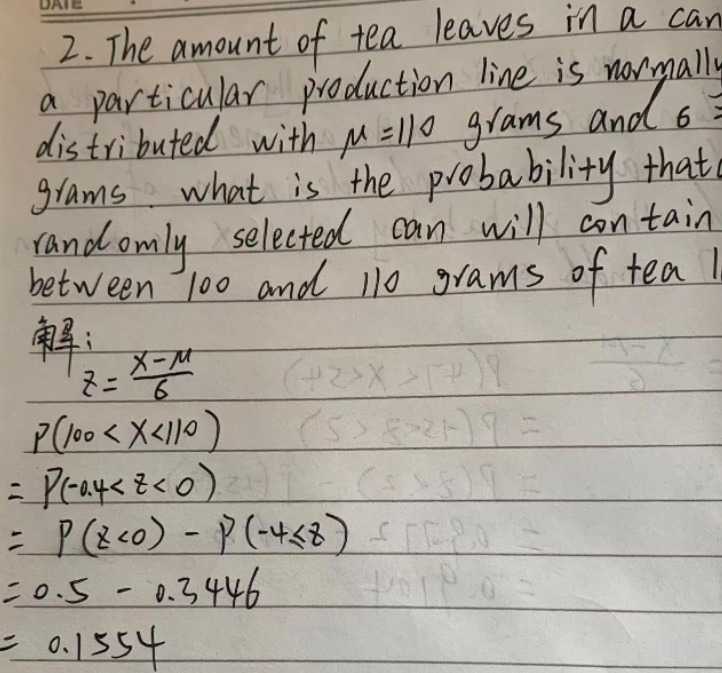 DATE
2. The amount of tea leaves in a can
a particular production line is normally
distributed with μ=110 grams and 6 =
grams. what is the probability that
randomly selected can will contain
between 100 and 110 grams of tea l
解:
z = x-μ/6
P(100<X<110)
= P(-0.4<z<0)
= P(z<0) - P(-4≤z)
=0.5 - 0.3446
= 0.1554